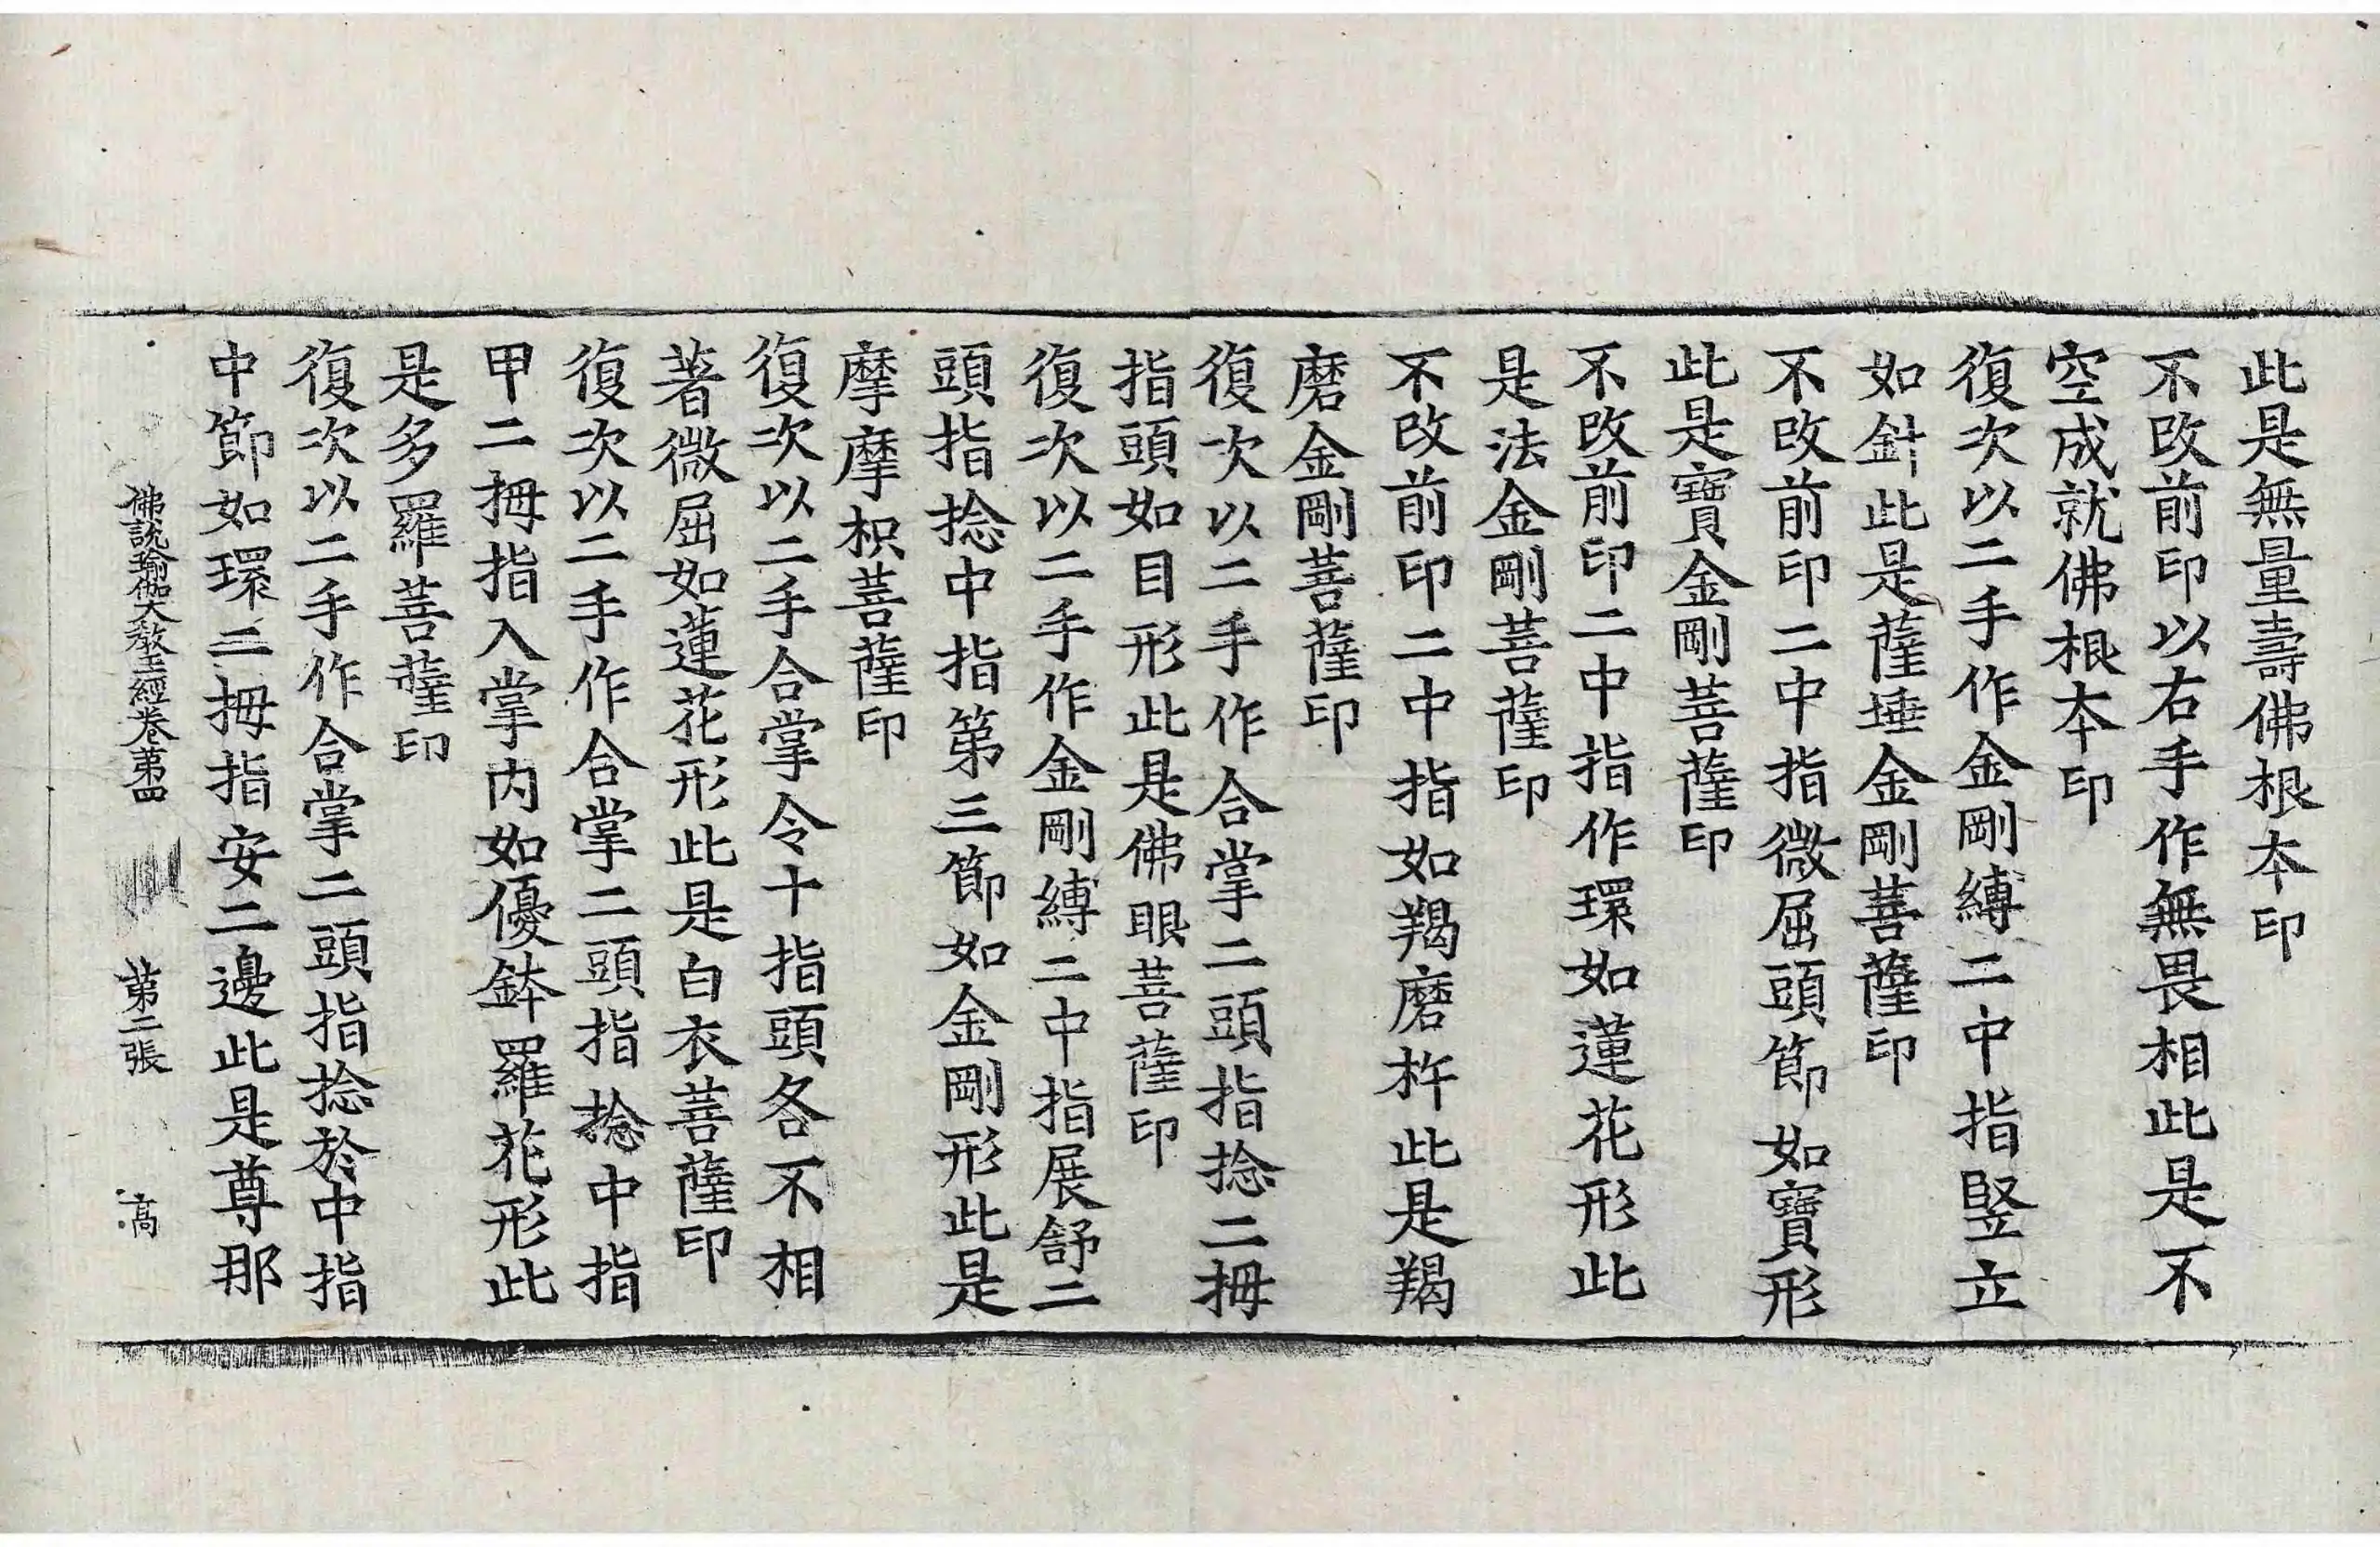 此是無量壽佛根本印
不改前印以右手作無畏相此是不
空成就佛根本印
復次以二手作金剛縛二中指豎立
如針此是薩埵金剛菩薩印
不改前印二中指微屈頭節如寶形
此是寶金剛菩薩印
不改前印二中指作環如蓮花形此
是法金剛菩薩印
不改前印二中指如羯磨杵此是羯
磨金剛菩薩印
復次以二手作合掌二頭指捻二拇
指頭如目形此是佛眼菩薩印
復次以二手作金剛縛二中指展舒二
頭指捻中指第三節如金剛形此是
摩摩枳菩薩印
復次以二手合掌令十指頭各不相
著微屈如蓮花形此是白衣菩薩印
復次以二手作合掌二頭指捻中指
甲二拇指入掌內如優鉢羅花形此
是多羅菩薩印
復次以二手作合掌二頭指捻於中指
中節如環二拇指安二邊此是尊那
佛說瑜伽大教王經卷第四 第二張 高